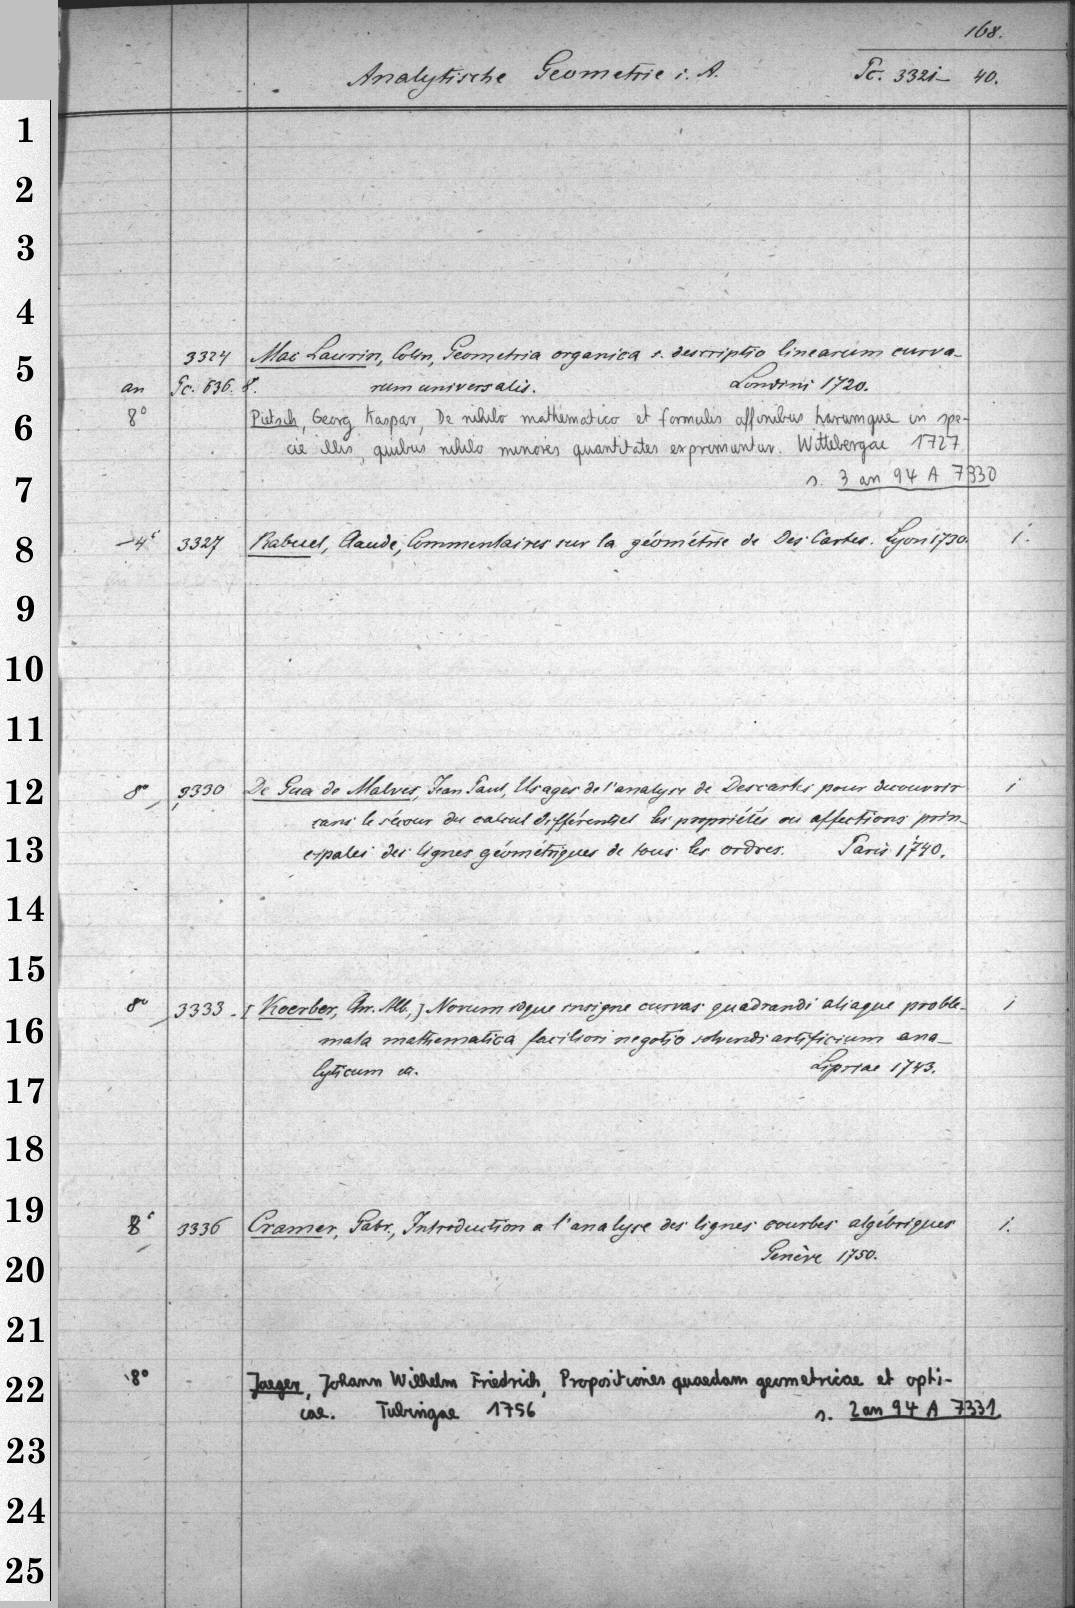 168.
Analytische Geometrie i. A. Tc. 3321- 40.
1
2
3
4
5 3324 Mac Laurin, Colin, Geometria organica s. descriptio linearum curva-
an Tc. 636. 8. rum universalis. Londini 1720.
6 8° Pietsch, Georg Kaspar, De nihilo mathematico et formulis affinibus harumque in spe-
cie illis, quibus nihilo minores quantitates exprimuntur. Wittebergae 1727
7 s. 3 an 94 A 7330
8 4° 3327 Rabuel, Claude, Commentaires sur la géométrie de Des Cartes. Lyon 1730. i.
9
10
11
12 8° 3330 De Gua de Malves, Jean Paul, Usages de l'analyse de Descartes pour decouvrir i
sans le sécour du calcul différentiel les propriétés ou affections prin-
13 cipales des lignes géométriques de tous les ordres. Paris 1740.
14
15
8° 3333. [Koerber, Chr. Alb.] Novum idque insigne curvas quadrandi aliaque proble- i
16 mata mathematica faciliori negotio solvendi artificium ana-
17 lyticum etc. Lipsiae 1743.
18
19 8° 3336 Cramer, Gabr., Introduction a l'analyse des lignes courbes algébriques i.
20 Genève 1750.
21
22 8° Jaeger, Johann Wilhelm Friedrich, Propositiones quaedam geometricae et opti-
cae. Tubingae 1756 s. 2 an 94 A 7331
23
24
25